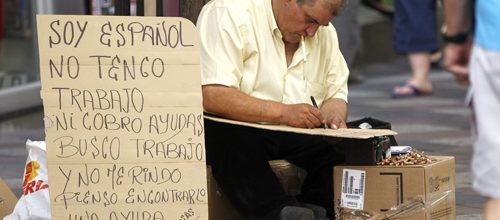 SOY ESPAÑOL
NO TENGO
TRABAJO
NI COBRO AYUDAS
BUSCO TRABAJO
Y NO ME RINDO
PIENSO ENCONTRARLO
UNA AYUDA